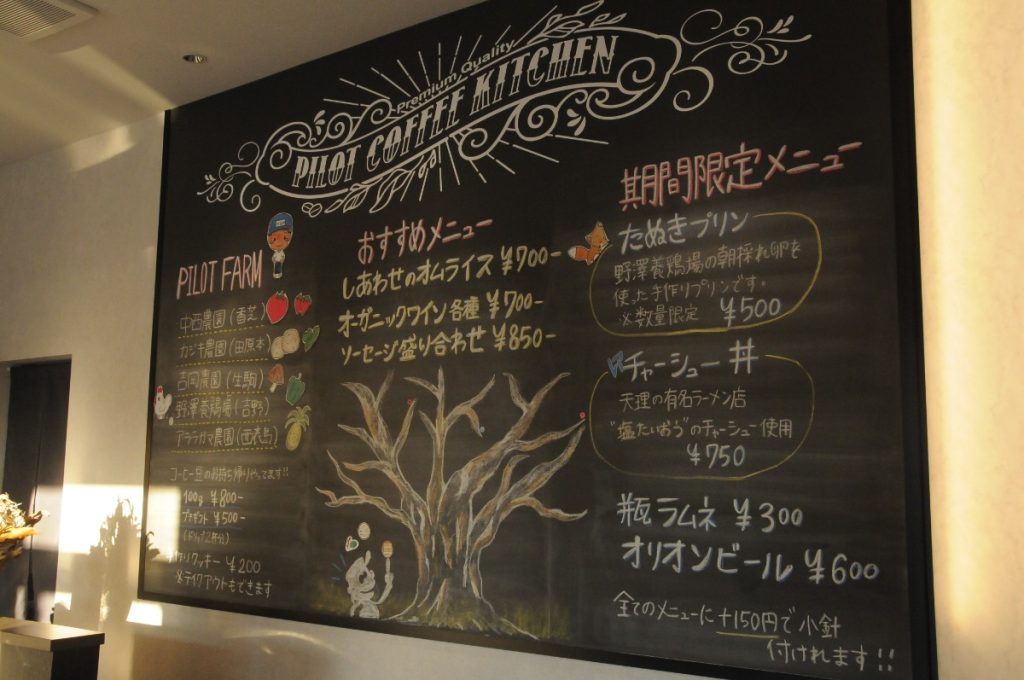 Premium Quality
PILOT COFFEE KITCHEN
PILOT FARM
中西農園(香芝)
カジキ農園(田原本)
吉岡農園(生駒)
野澤養鶏場(吉野)
アララガマ農園(西表島)
コーヒー豆のお持ち帰りやってます!!
100g ¥800-
プチギフト ¥500-
(ドリップ2杯分)
作りクッキー ¥200
※テイクアウトもできます
おすすめメニュー
しあわせのオムライス ¥700-
オーガニックワイン各種 ¥700-
ソーセージ盛り合わせ ¥850-
期間限定メニュー
たぬきプリン
野澤養鶏場の朝採れ卵を
使った手作りプリンです。
※数量限定 ¥500
チャーシュー丼
天理の有名ラーメン店
"塩たいおう"のチャーシュー使用
¥750
瓶ラムネ ¥300
オリオンビール ¥600
全てのメニューに+150円で小針
付けれます!!